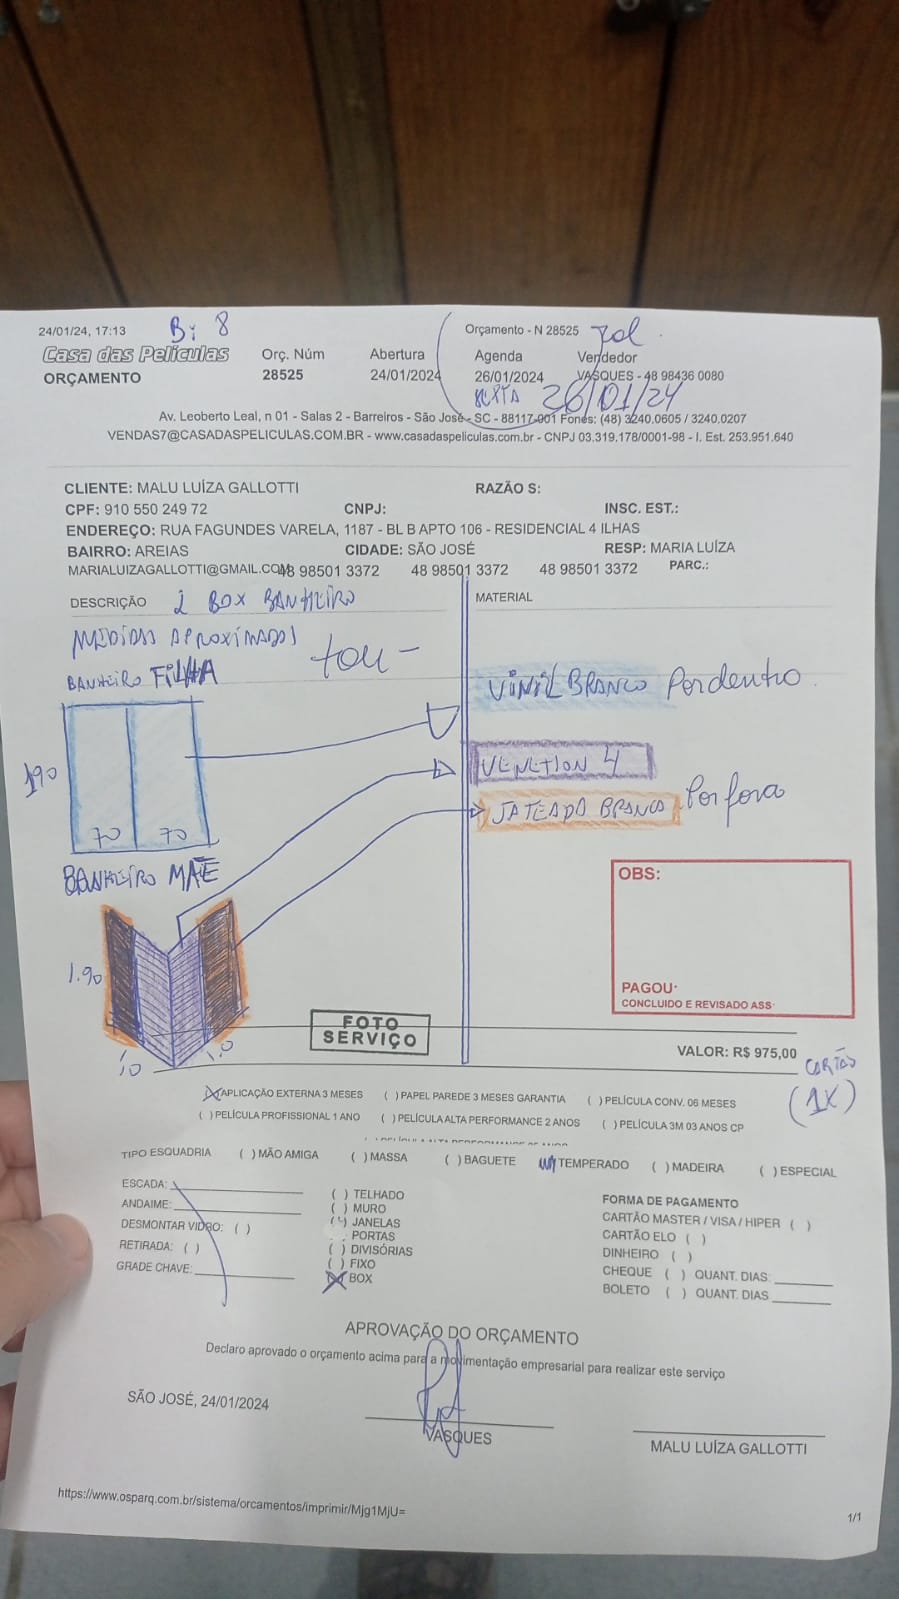 24/01/24, 17:13
B: 8
Orçamento - N 28525
Casa das Películas
ORÇAMENTO
Orç. Núm
28525
Abertura
24/01/2024
Agenda
26/01/2024
Vendedor
VASQUES - 48 98436 0080
SEXTA 26/01/24
Av. Leoberto Leal, n 01 - Salas 2 - Barreiros - São José - SC - 88117-001 Fones: (48) 3240.0605 / 3240.0207
VENDAS7@CASADASPELICULAS.COM.BR - www.casadaspeliculas.com.br - CNPJ 03.319.178/0001-98 - I. Est. 253.951.640
CLIENTE: MALU LUÍZA GALLOTTI
RAZÃO S:
CPF: 910 550 249 72
CNPJ:
INSC. EST.:
ENDEREÇO: RUA FAGUNDES VARELA, 1187 - BL B APTO 106 - RESIDENCIAL 4 ILHAS
BAIRRO: AREIAS
CIDADE: SÃO JOSÉ
RESP: MARIA LUÍZA
MARIALUIZAGALLOTTI@GMAIL.COM
48 98501 3372
48 98501 3372
48 98501 3372
PARC.:
DESCRIÇÃO
2 BOX BANHEIRO
MATERIAL
MEDIDAS APROXIMADAS
BANHEIRO FILHA
VINIL BRANCO Por dentro
190
70 70
VENETION 4
JATEADO BRANCO Por fora
BANHEIRO MÃE
1.90
OBS:
PAGOU:
CONCLUIDO E REVISADO ASS:
FOTO
SERVIÇO
VALOR: R$ 975,00
CARTÃO
(1X)
APLICAÇÃO EXTERNA 3 MESES
( ) PAPEL PAREDE 3 MESES GARANTIA
( ) PELÍCULA CONV. 06 MESES
( ) PELÍCULA PROFISSIONAL 1 ANO
( ) PELÍCULA ALTA PERFORMANCE 2 ANOS
( ) PELÍCULA 3M 03 ANOS CP
TIPO ESQUADRIA ( ) MÃO AMIGA ( ) MASSA ( ) BAGUETE TEMPERADO ( ) MADEIRA ( ) ESPECIAL
ESCADA:
ANDAIME:
DESMONTAR VIDRO: ( )
RETIRADA: ( )
GRADE CHAVE:
( ) TELHADO
( ) MURO
( ) JANELAS
PORTAS
( ) DIVISÓRIAS
( ) FIXO
BOX
FORMA DE PAGAMENTO
CARTÃO MASTER / VISA / HIPER ( )
CARTÃO ELO ( )
DINHEIRO ( )
CHEQUE ( ) QUANT. DIAS:
BOLETO ( ) QUANT. DIAS
APROVAÇÃO DO ORÇAMENTO
Declaro aprovado o orçamento acima para a movimentação empresarial para realizar este serviço
SÃO JOSÉ, 24/01/2024
VASQUES
MALU LUÍZA GALLOTTI
https://www.osparq.com.br/sistema/orcamentos/imprimir/Mjg1MjU=
1/1